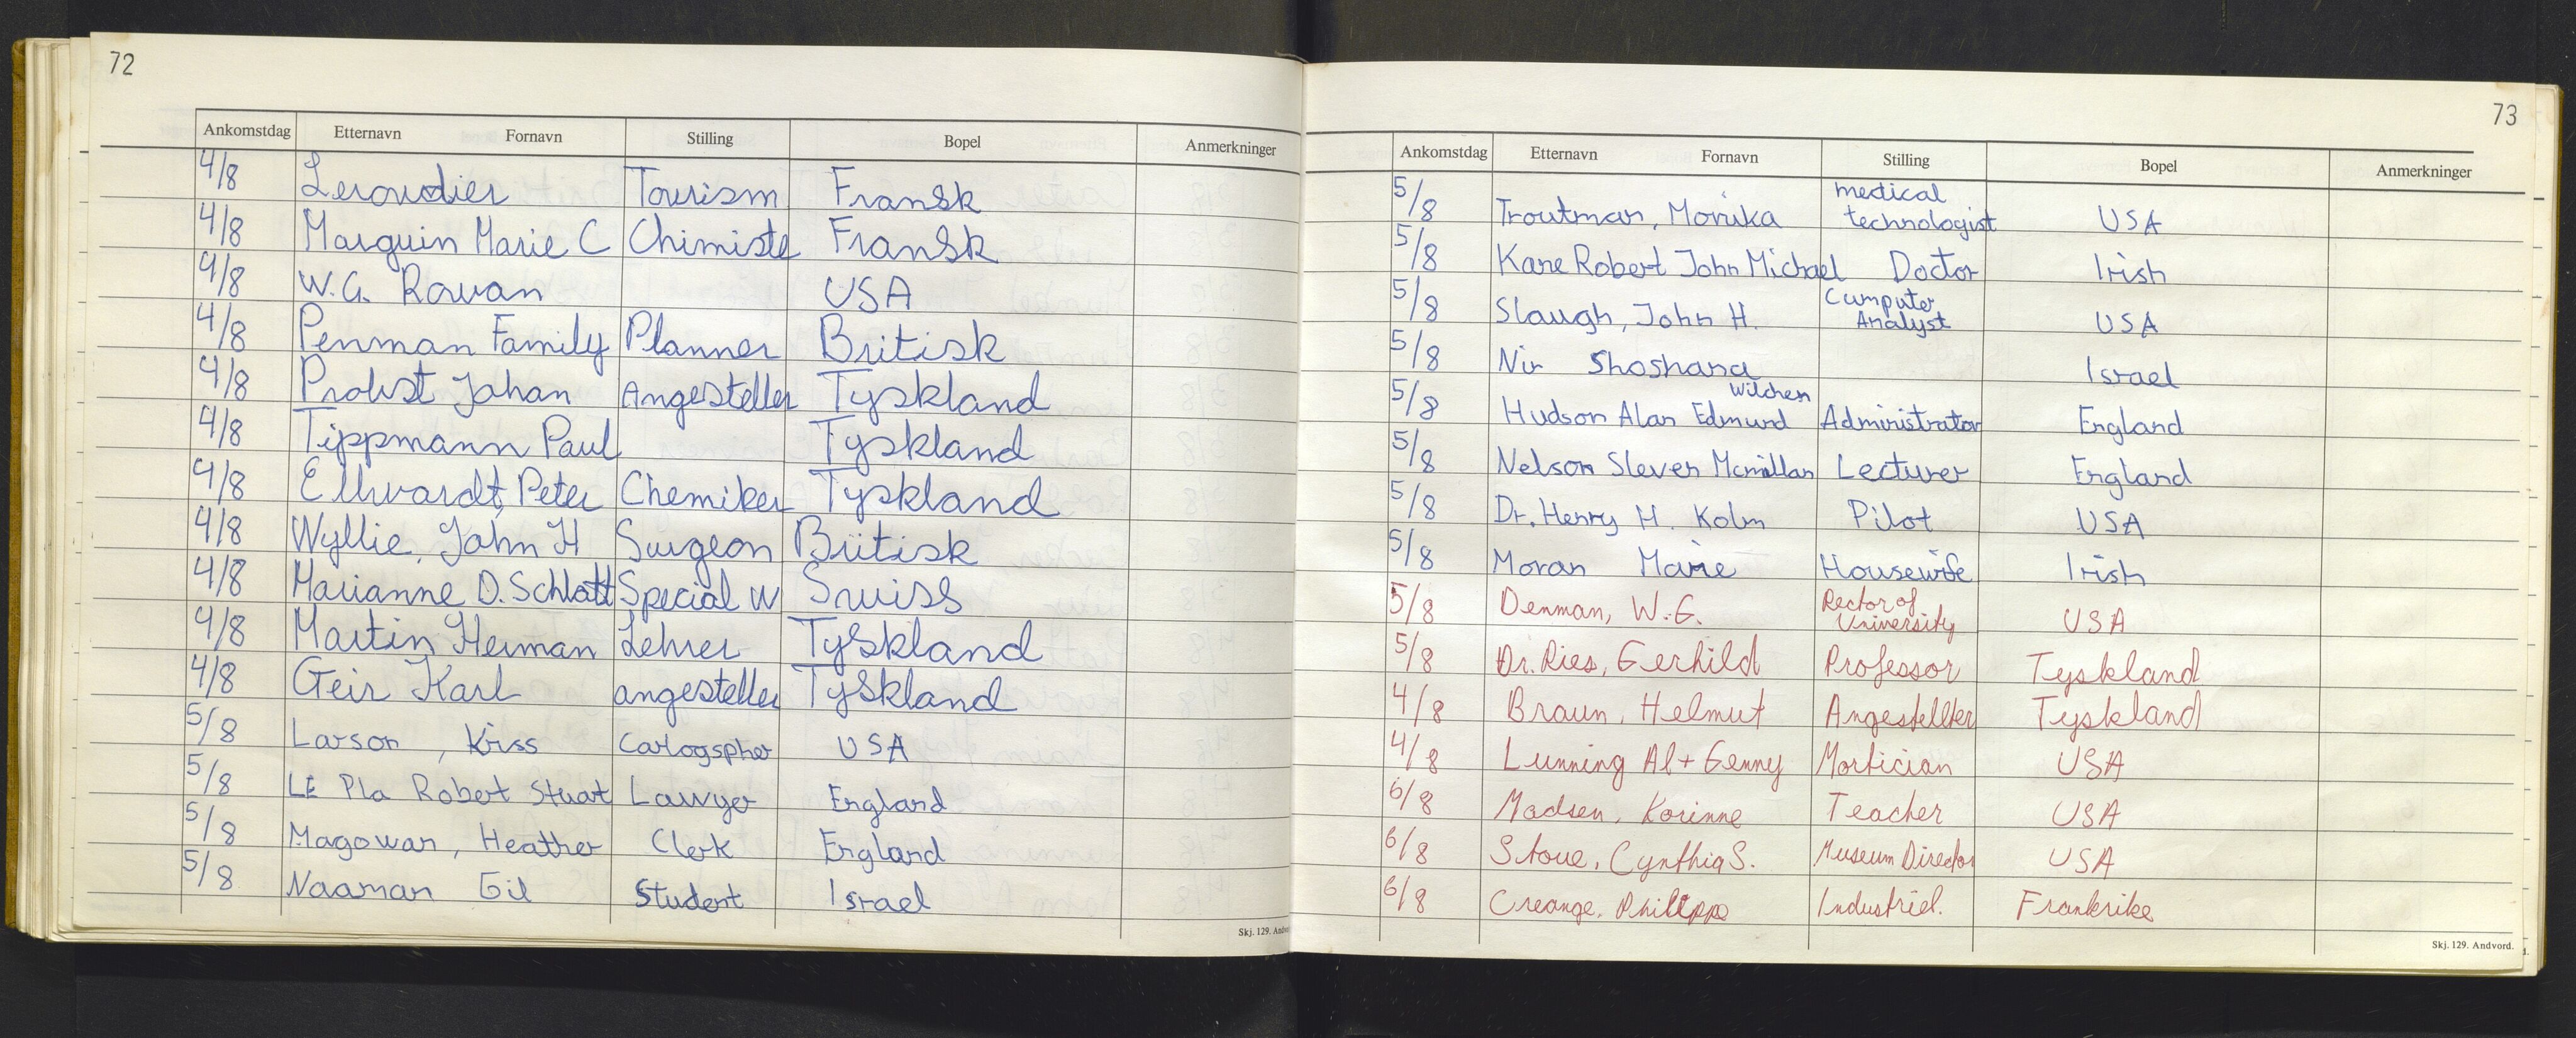 72
Ankomstdag Etternavn Fornavn Stilling Bopel Anmerkninger
4/8 Leroudier Tourism Fransk
4/8 Marguin Marie C Chimiste Fransk
4/8 W.G. Rowan USA
4/8 Penman Family Planner Britisk
4/8 Probst Johan Angesteller Tyskland
4/8 Tippmann Paul Tyskland
4/8 Ellwardt, Peter Chemiker Tyskland
4/8 Wyllie, John H Surgeon Britisk
4/8 Marianne D. Schlatt Special W Swiss
4/8 Martin Herman Lehrer Tyskland
4/8 Geir Karl angesteller Tyskland
5/8 Larson, Kriss Cartogspher USA
5/8 LE Pla Robert Stuart Lawyer England
5/8 Magowan, Heather Clerk England
5/8 Naaman Gil Student Israel
Skj. 129. Andvo
73
Ankomstdag Etternavn Fornavn Stilling Bopel Anmerkninger
5/8 Troutman, Monika medical technologist USA
5/8 Kane Robert John Michael Doctor Irish
5/8 Slaugh, John H. Computer Analyst USA
5/8 Nir Shoshana Israel
5/8 Hudson Alan Edmund Wilchen Administrator England
5/8 Nelson Steven Mcmillan Lecturer England
5/8 Dr. Henry H. Kolm Pilot USA
5/8 Moran Marie Housewife Irish
5/8 Denman, W.G. Rector of University USA
5/8 Dr. Ries, Gerhild Professor Tyskland
4/8 Braun, Helmut Angestellter Tyskland
4/8 Lunning Al + Genny Mortician USA
6/8 Madsen, Korinne Teacher USA
6/8 Stoue, Cynthia S. Museum Director USA
6/8 Creange, Philippe Industriel. Frankrike
Skj. 129. Andvord.